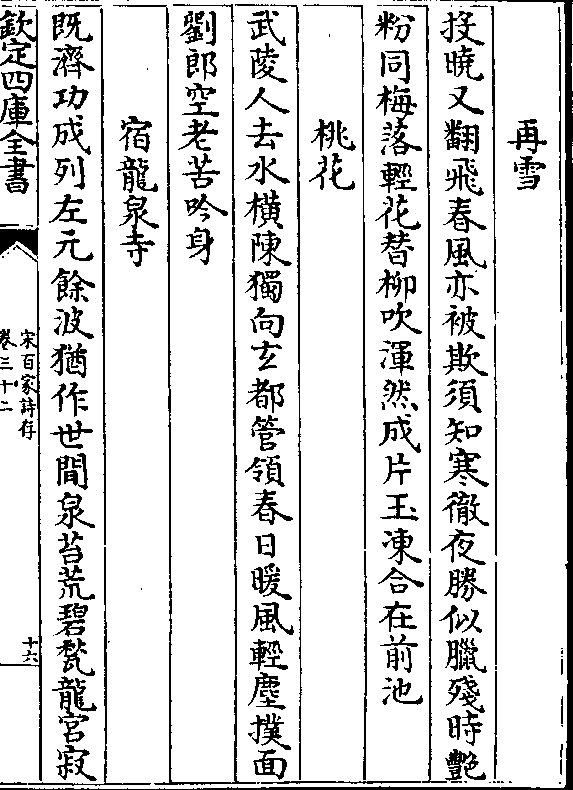 再雪
投曉又翻飛春風亦被欺須知寒徹夜勝似臘殘時艷
粉同梅落輕花替柳吹渾然成片玉凍合在前池
桃花
武陵人去水橫陳獨向玄都管領春日暖風輕塵撲面
劉郎空老苦吟身
宿龍泉寺
既濟功成列左元餘波猶作世間泉苔荒碧甃龍宮寂
欽定四庫全書
宋百家詩存
卷三十二
十六